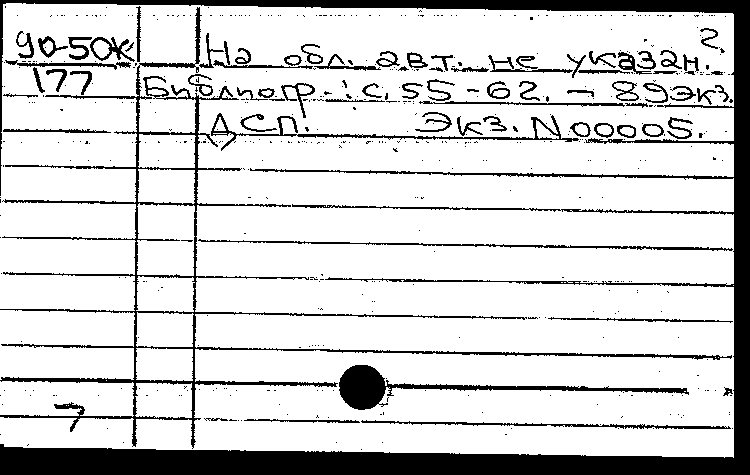 2.
90-50к На обл. авт. не указан.
177 Библиогр.: с. 55-62. – 89экз.
ДСП! Экз. N00005.
7